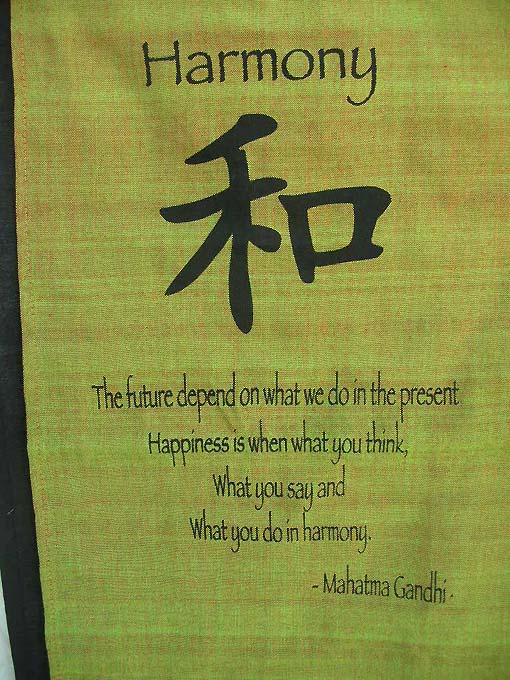 Harmony
和
The future depend on what we do in the present
Happiness is when what you think,
What you say and
What you do in harmony.
- Mahatma Gandhi -